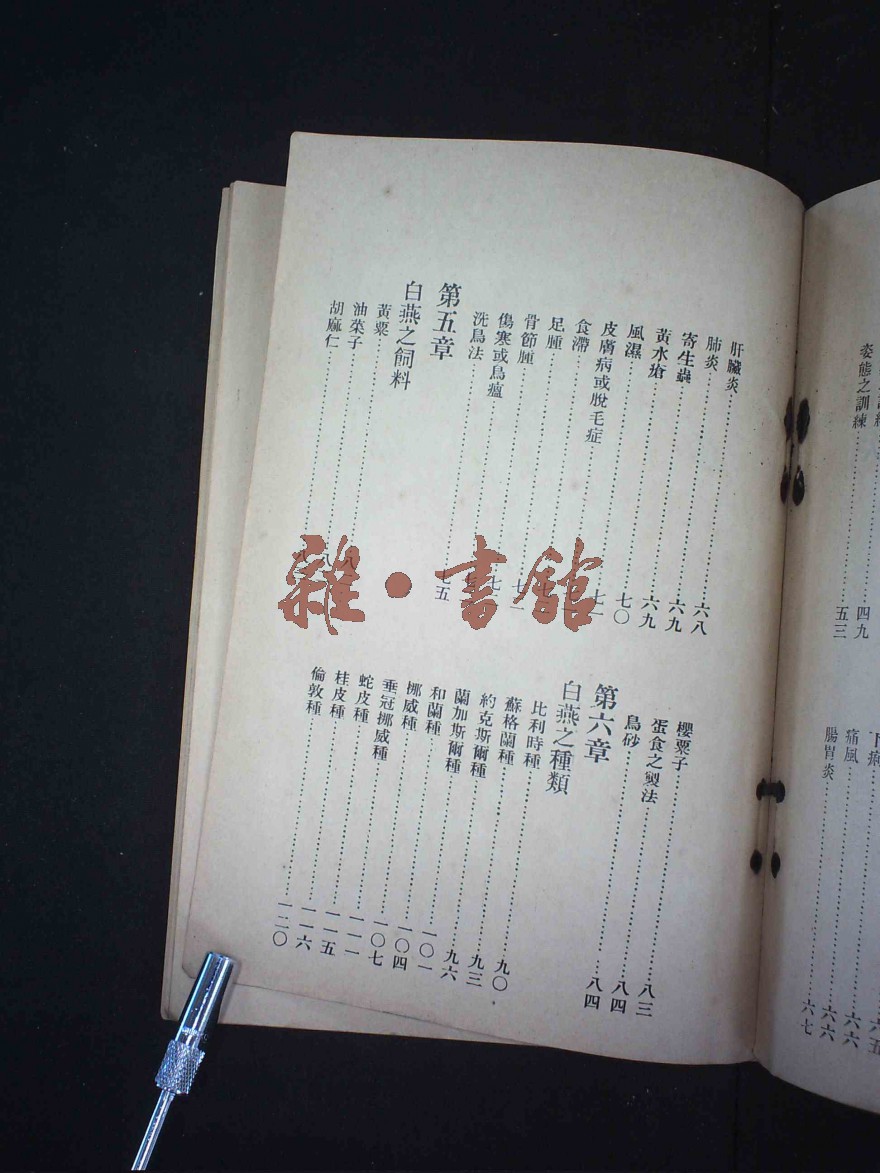 姿態之訓練……五三
痛風……六六
腸胃炎……六七
肝臟炎……六八
肺炎……六九
寄生蟲……六九
黃水瘡……七〇
風濕……
皮膚病或脫毛症……
食滯……
足腫……
骨節腫……
傷寒或鳥瘟……
洗鳥法……七五
第五章
白燕之飼料
黃粟……
油菜子……
胡麻仁……
櫻粟子……八三
蛋食之製法……八四
鳥砂……八四
第六章
白燕之種類
比利時種……九〇
蘇格蘭種……九三
約克斯爾種……九六
蘭加斯爾種……一〇一
和蘭種……一〇四
挪威種……一〇七
垂冠挪威種……一一一
蛇皮種……一一五
桂皮種……一一六
倫敦種……一二〇
雜·書館